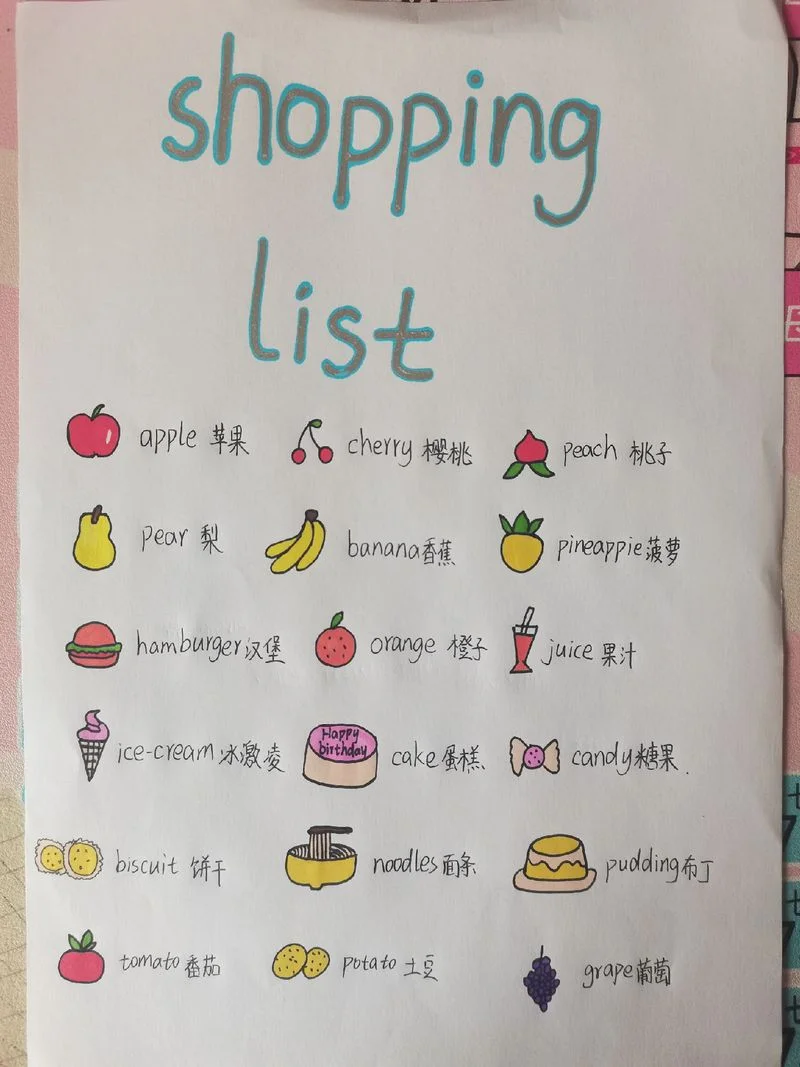 shopping
list
apple 苹果 cherry 樱桃 peach 桃子
pear 梨 banana 香蕉 pineappie 菠萝
hamburger 汉堡 orange 橙子 juice 果汁
ice-cream 冰激凌 Happy birthday cake 蛋糕 candy 糖果
biscuit 饼干 noodles 面条 pudding 布丁
tomato 番茄 potato 土豆 grape 葡萄